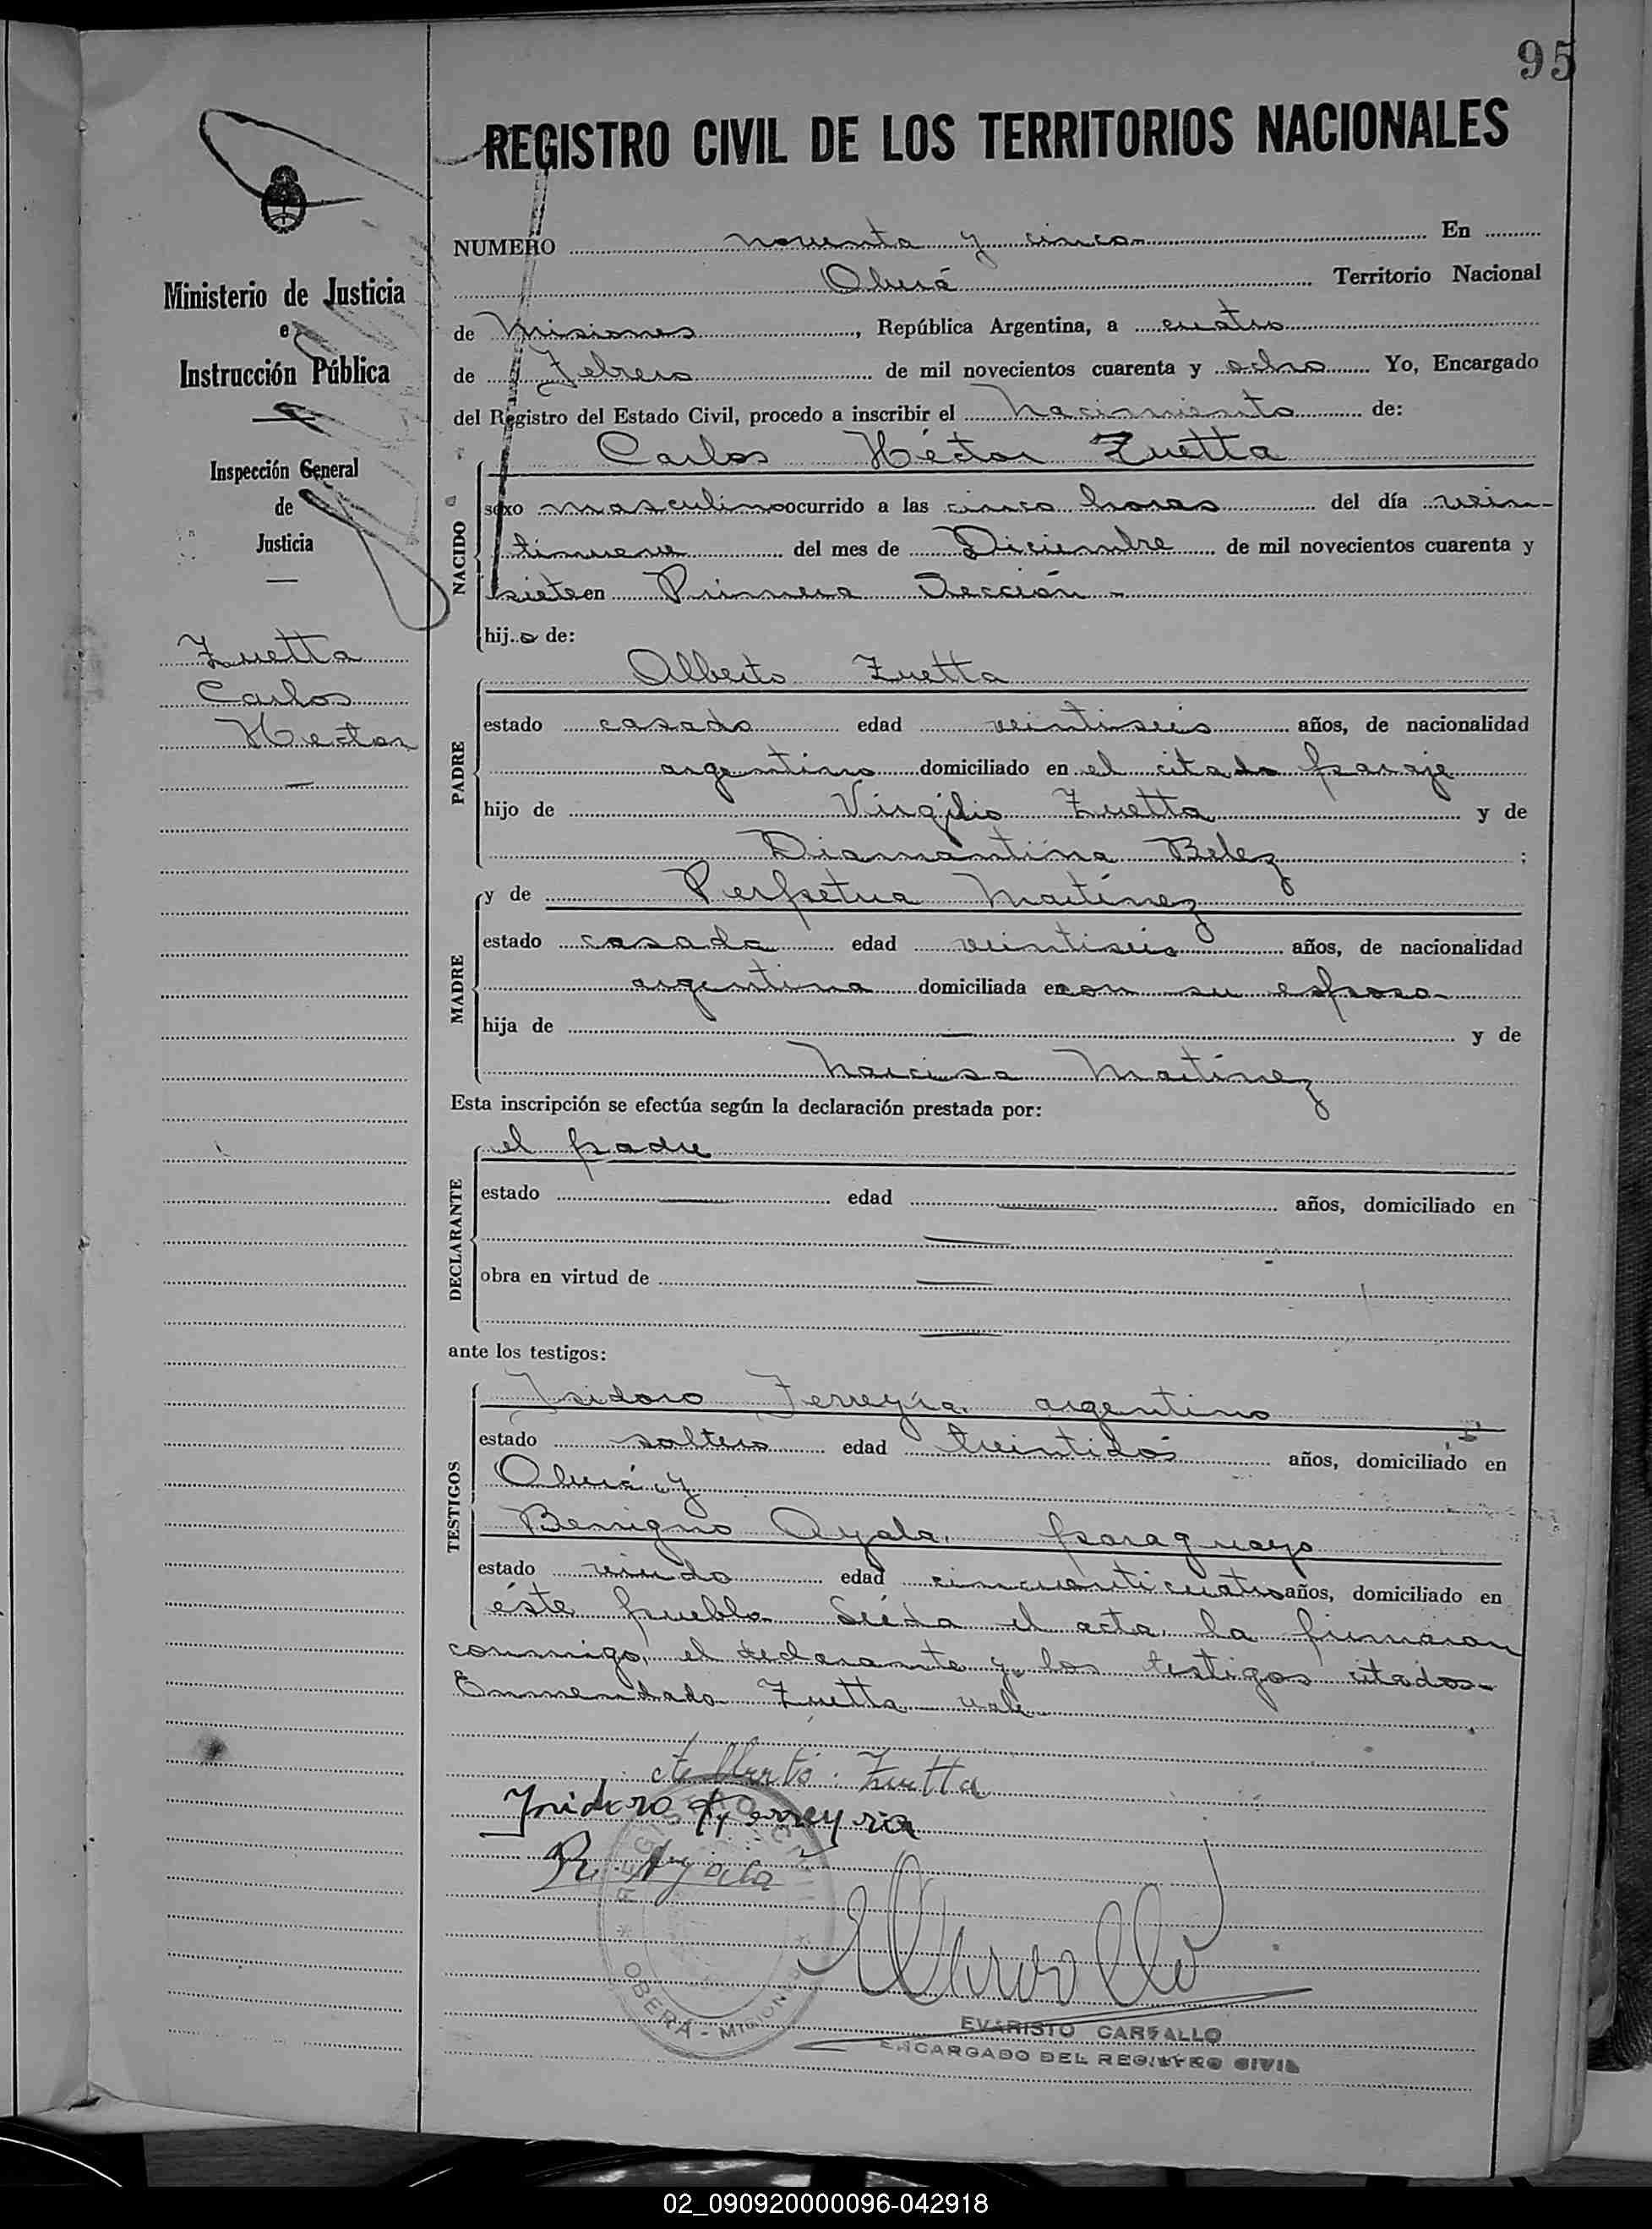 95
REGISTRO CIVIL DE LOS TERRITORIOS NACIONALES
Ministerio de Justicia
e
Instrucción Pública
Inspección General
de
Justicia
Zuetta
Carlos
Hector
NUMERO noventa y cinco En
Oberá Territorio Nacional
de Misiones, República Argentina, a cuatro
de Febrero de mil novecientos cuarenta y ocho Yo, Encargado
del Registro del Estado Civil, procedo a inscribir el Nacimiento de:
NACIDO
Carlos Héctor Zuetta
sexo masculino ocurrido a las cinco horas del día vein-
tinueve del mes de Diciembre de mil novecientos cuarenta y
siete en Primera Sección -
hijo de:
PADRE
Alberto Zuetta
estado casado edad veintiseis años, de nacionalidad
argentino domiciliado en el citado paraje
hijo de Virgilio Zuetta y de
Diamantina Belez ;
MADRE
y de Perpetua Martínez
estado casada edad veintiseis años, de nacionalidad
argentina domiciliada en con su esposo
hija de — y de
Narcisa Martínez
Esta inscripción se efectúa según la declaración prestada por:
DECLARANTE
el padre
estado — edad — años, domiciliado en
—
obra en virtud de —
—
ante los testigos:
TESTIGOS
Isidoro Ferreyra, argentino
estado soltero edad treintidós años, domiciliado en
Oberá y
Benigno Ayala, paraguayo
estado viudo edad cincuenticuatro años, domiciliado en
éste pueblo. Leída el acta, la firmaron
conmigo, el declarante y los testigos citados-
Enmendado Zuetta vale
Alberto Zuetta
Isidoro Ferreyra
B. Ayala
REGISTRO CIVIL
OBERÁ - MISIONES
EVARISTO CARBALLO
ENCARGADO DEL REGISTRO CIVIL
02_090920000096-042918